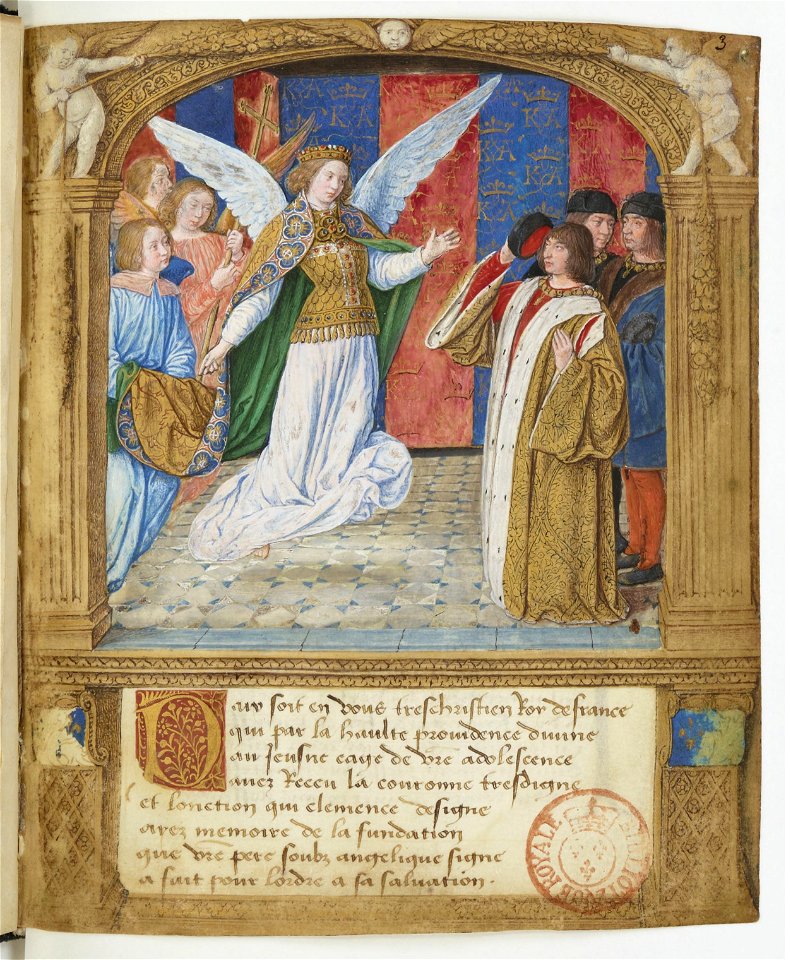 3
K A
K A
K A
K A
K A
Paix soit en vous treschristien Roy de france
qui par la haulte providence divine
au jeusne eage de vre adolescence
avez Receu la couronne tresdigne
et lonction qui clemence designe
ayez memoire de la fundation
que vre pere soubz angelique signe
a fait pour lordre a sa salvation.
ROYALE